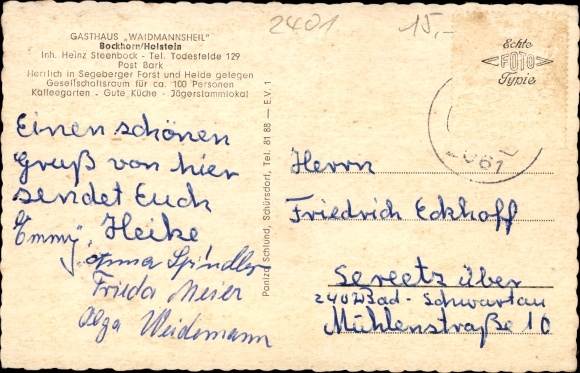 2401 15,-
GASTHAUS „WAIDMANNSHEIL"
Bockhorn/Holstein
Inh. Heinz Steenbock - Tel. Todesfelde 129
Post Bark
Herrlich in Segeberger Forst und Heide gelegen
Gesellschaftsraum für ca. 100 Personen
Kaffeegarten - Gute Küche - Jägerstammlokal
Echte
FOTO
Typie
2061
Einen schönen
Gruß von hier
sendet Euch
Emmy, Heike
Anna Spindler
Frieda Meier
Olga Weidemann
Paniza Schlund, Schürsdorf, Tel. 81 88 — E.V. 1
Herrn
Friedrich Eckhoff
Sereetz über
2407 Bad - Schwartau
Mühlenstraße 10